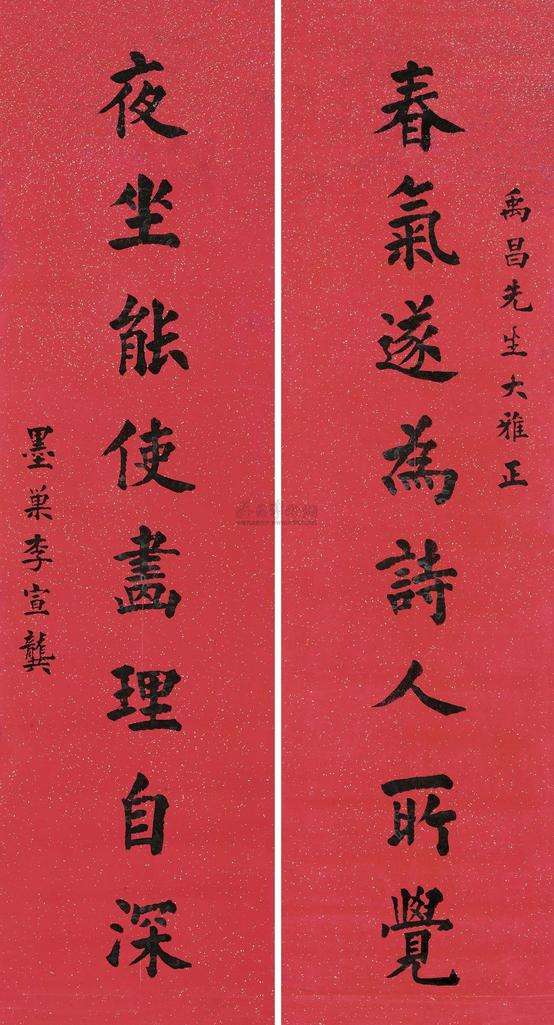 禹昌先生大雅正
春氣遂為詩人所覺
夜坐能使畫理自深
墨巢李宣龔